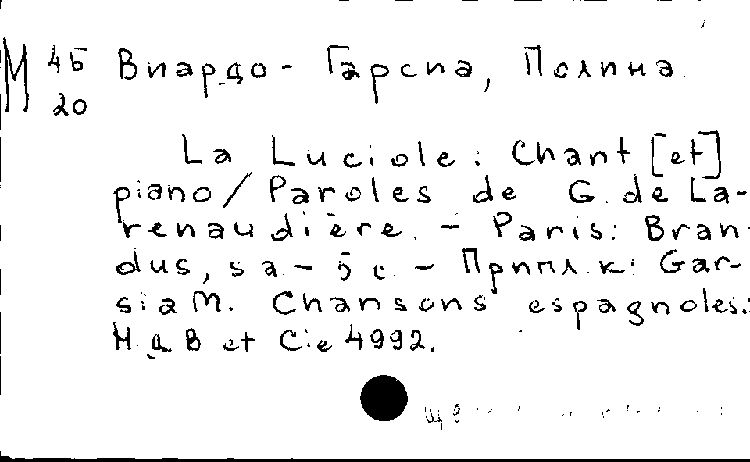 М 45 Виардо-Гарсиа, Полина
20
La Luciole: Chant [et]
piano/Paroles de G. de La-
renaudière. - Paris: Bran-
dus, s a - 5 с. - Приплк: Gar-
sia M. Chansons espagnoles.:
Н. Д. B et Cie 4992.